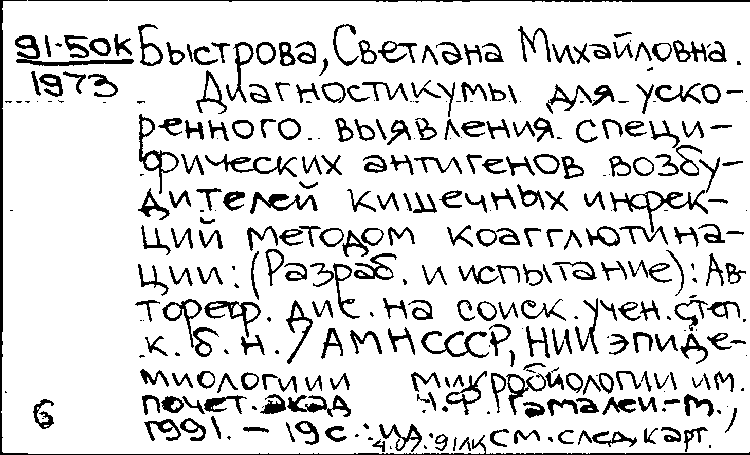 91-50К Быстрова, Светлана Михайловна.
1973 Диагностикумы для уско-
ренного выявления специ-
фических антигенов возбу-
дителей кишечных инфек-
ций методом коагглютина-
ции: (Разраб. и испытание): Ав-
тореф. дис. на соиск. учен. степ.
к. б. н. / АМН СССР, НИИ эпиде-
миологиии микробиологии им.
почет. акад Н.Ф. Гамалеи.-М.,
6 1991. - 19 с.: ил. см. след, карт.